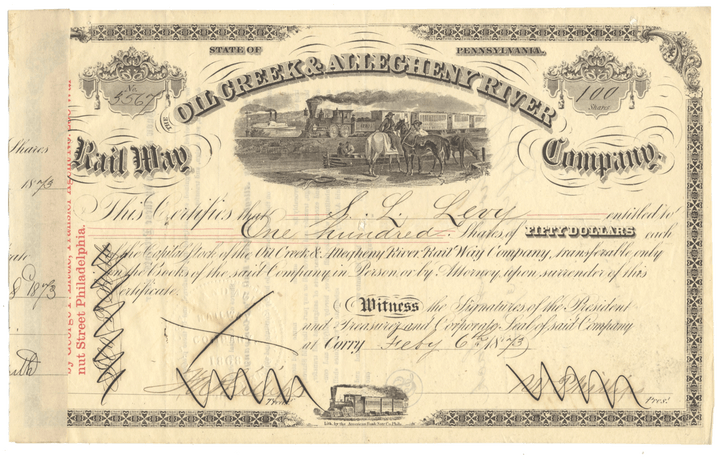 STATE OF PENNSYLVANIA.
No. 5567
100
Shares
THE OIL CREEK & ALLEGHENY RIVER
Rail Way Company.
Shares
1873
This Certifies that S. L. Levy entitled to
One hundred Shares of FIFTY DOLLARS each
in the Capital Stock of the Oil Creek & Allegheny River Rail Way Company, transferable only
on the Books of the said Company in Person or by Attorney, upon surrender of this
Certificate.
1873
Witness the Signatures of the President
and Treasurer and Corporate Seal of said Company
at Corry Feby 6th 1873
Treas. Pres.
Lith. by the American Bank Note Co. Phila.
nut Street Philadelphia.